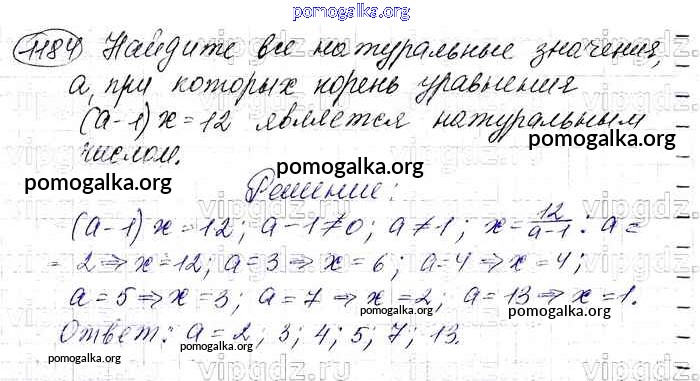 pomogalka.org
1184 Найдите все натуральные значения,
а, при которых корень уравнения
(а-1)x=12 является натуральным
числом.
pomogalka.org
pomogalka.org
pomogalka.org
Решение:
(а-1)x=12; а-1≠0; а≠1; x=12/(а-1): а=
=2⇒x=12; а=3⇒x=6; а=4⇒x=4;
а=5⇒x=3; а=7⇒x=2; а=13⇒x=1.
Ответ: а=2; 3; 4; 5; 7; 13.
pomogalka.org
pomogalka.org
pomogalka.org